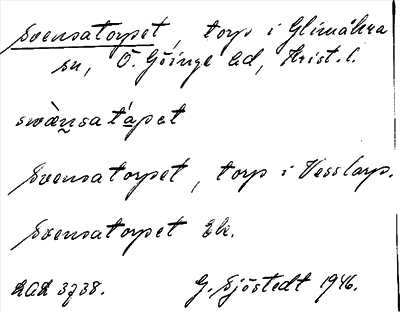 Svensatorpet, torp i Glimåkra
sn, Ö. Göinge hd, Krist. l.
swæ̀nsatápet
Svensatorpet, torp i Vesslarp.
Svensatorpet Ek.
LAL 3738.    G. Sjöstedt 1946.